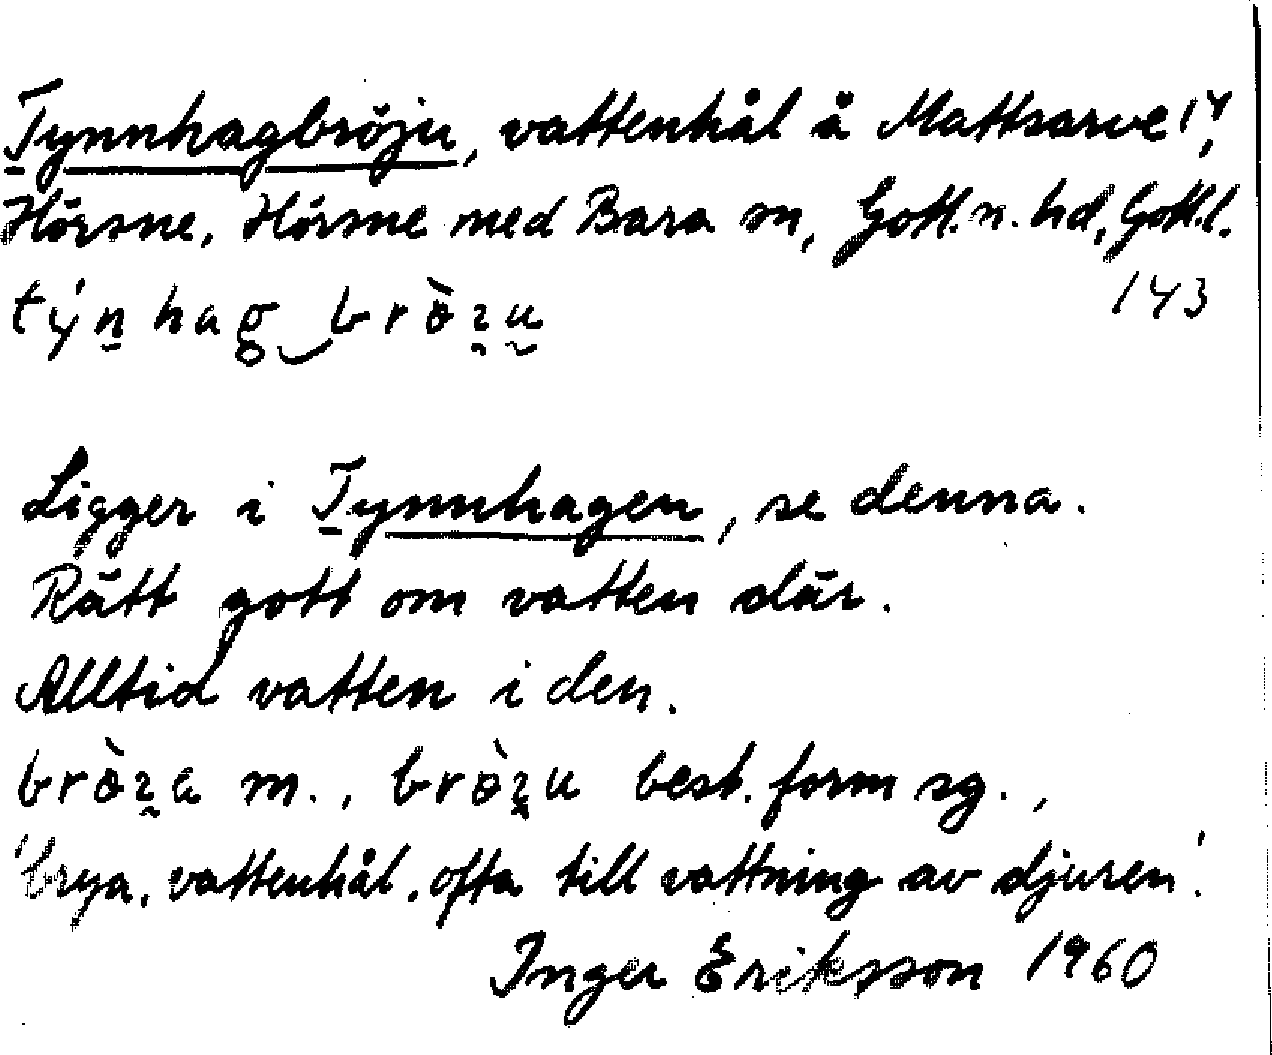 Tynnhagbröju, vattenhål å Mattsarve 1⁴,
Hörsne, Hörsne med Bara sn, Gotl. n. hd, Gotl. l.
týn̲hag‿brò̈ʐu 143
Ligger i Tynnhagen, se denna.
Rätt gott om vatten där.
Alltid vatten i den.
brò̈ʐa m., brò̈ʐu best. form sg.,
'brya, vattenhål, ofta till vattning av djuren'.
Inger Eriksson 1960